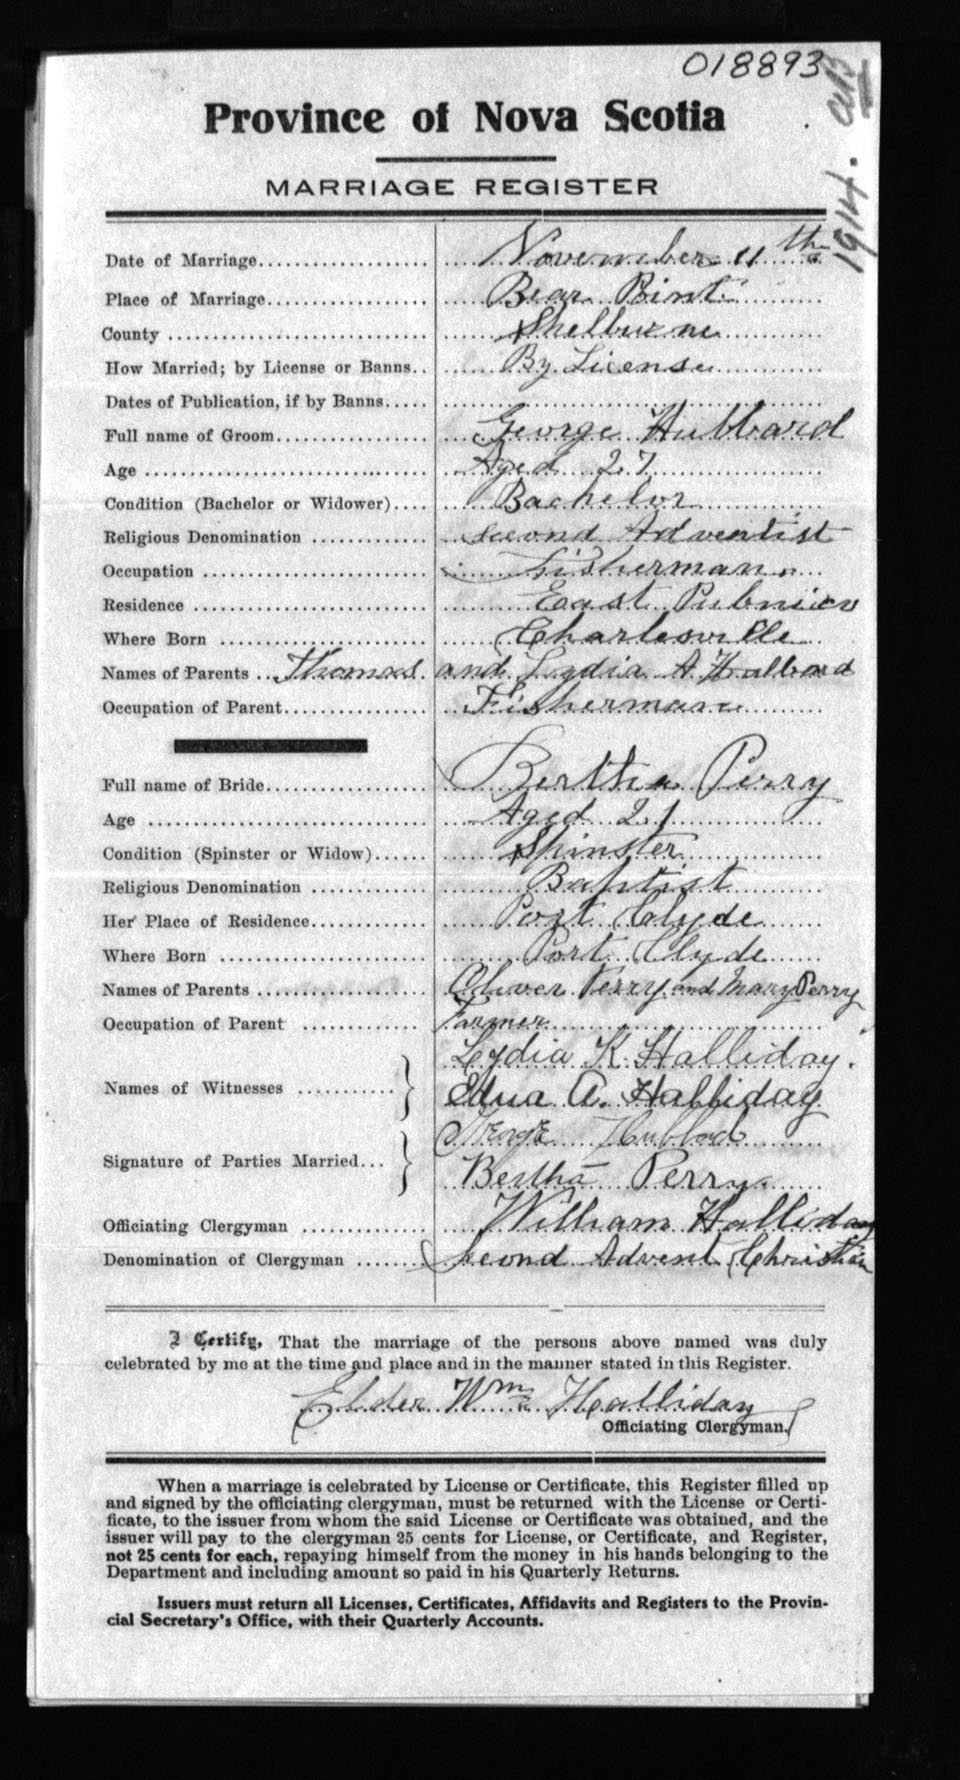 018893
1914.
Province of Nova Scotia
MARRIAGE REGISTER
Date of Marriage.................... November 11th
Place of Marriage................... Bear Point
County .............................. Shelburne
How Married; by License or Banns.. By License
Dates of Publication, if by Banns.....
Full name of Groom.................. George Hubbard
Age ................................. Aged 27
Condition (Bachelor or Widower).... Bachelor
Religious Denomination ............. Second Adventist
Occupation .......................... Fisherman
Residence ........................... East Pubnico
Where Born ......................... Charlesville
Names of Parents .. Thomas and Lydia A Hubbard
Occupation of Parent................. Fisherman
Full name of Bride................... Bertha Perry
Age ................................. Aged 21
Condition (Spinster or Widow)...... Spinster
Religious Denomination ............. Baptist
Her Place of Residence.............. Port Clyde
Where Born ......................... Port Clyde
Names of Parents .................. Oliver Perry and Mary Perry
Occupation of Parent ............. Farmer
Lydia K. Halliday.
Names of Witnesses ...........
Edna A. Halliday
George Hubbard
Signature of Parties Married...
Bertha Perry
Officiating Clergyman .............. William Halliday
Denomination of Clergyman ........ Second Advent Christian
I Certify, That the marriage of the persons above named was duly
celebrated by me at the time and place and in the manner stated in this Register.
Elder Wm. Halliday
Officiating Clergyman.
When a marriage is celebrated by License or Certificate, this Register filled up
and signed by the officiating clergyman, must be returned with the License or Certi-
ficate, to the issuer from whom the said License or Certificate was obtained, and the
issuer will pay to the clergyman 25 cents for License, or Certificate, and Register,
not 25 cents for each, repaying himself from the money in his hands belonging to the
Department and including amount so paid in his Quarterly Returns.
Issuers must return all Licenses, Certificates, Affidavits and Registers to the Provin-
cial Secretary's Office, with their Quarterly Accounts.